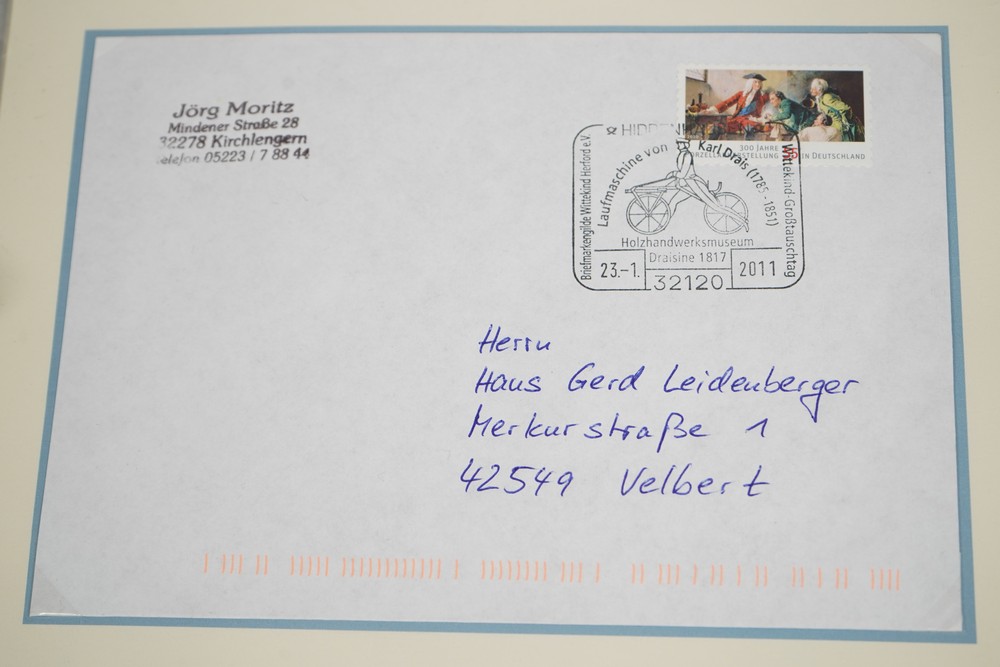 Jörg Moritz
Mindener Straße 28
32278 Kirchlengern
Telefon 05223 / 7 88 44
300 JAHRE
PORZELLANHERSTELLUNG IN DEUTSCHLAND
Briefmarkengilde Wittekind Herford e.V.
Laufmaschine von Karl Drais (1785-1851)
Wittekind-Großtauschtag
Holzhandwerksmuseum
Draisine 1817
23.-1. 2011
32120
Herrn
Hans Gerd Leidenberger
Merkurstraße 1
42549 Velbert